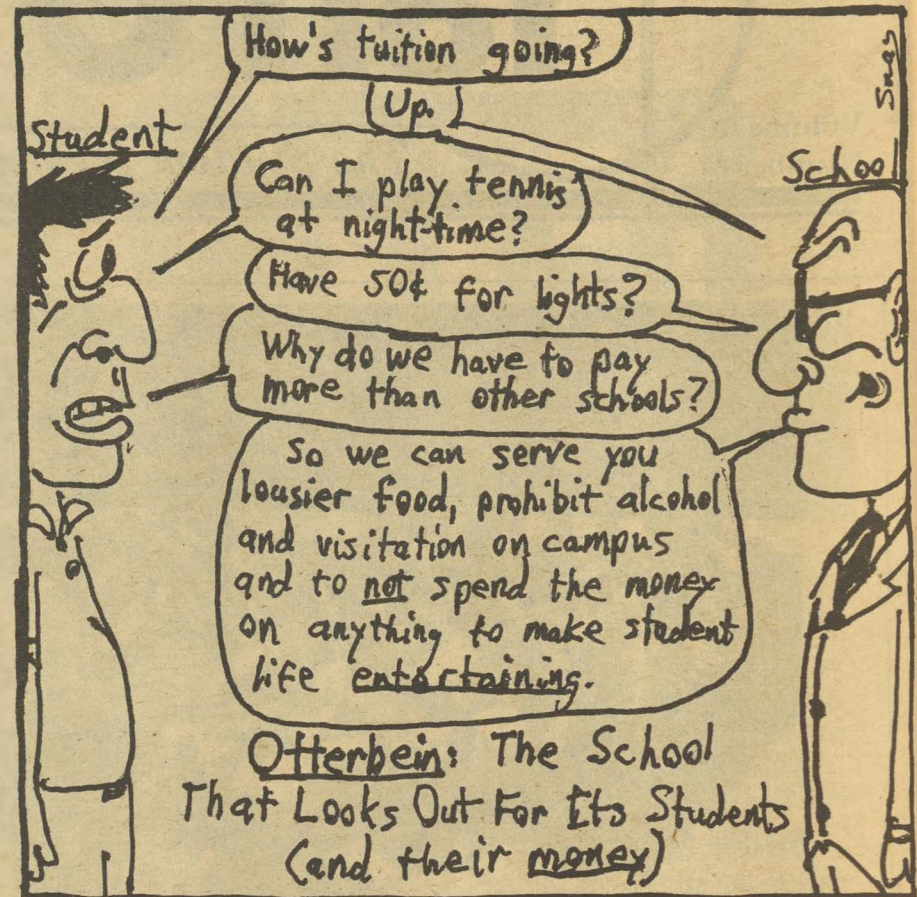 How's tuition going?
Up.
Student
School
Can I play tennis
at night-time?
Have 50¢ for lights?
Why do we have to pay
more than other schools?
So we can serve you
lousier food, prohibit alcohol
and visitation on campus
and to not spend the money
on anything to make student
life entertaining.
Otterbein: The School
That Looks Out For Its Students
(and their money)